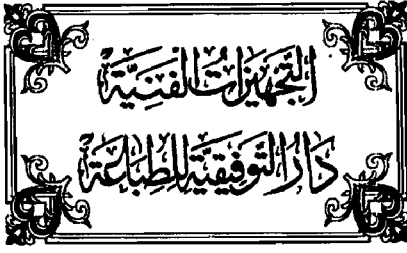 التَّجْهِيزَاتُ الْفَنِيَّةُ
دَارُ التَّوْفِيقِيَّةِ لِلطِّبَاعَةِ